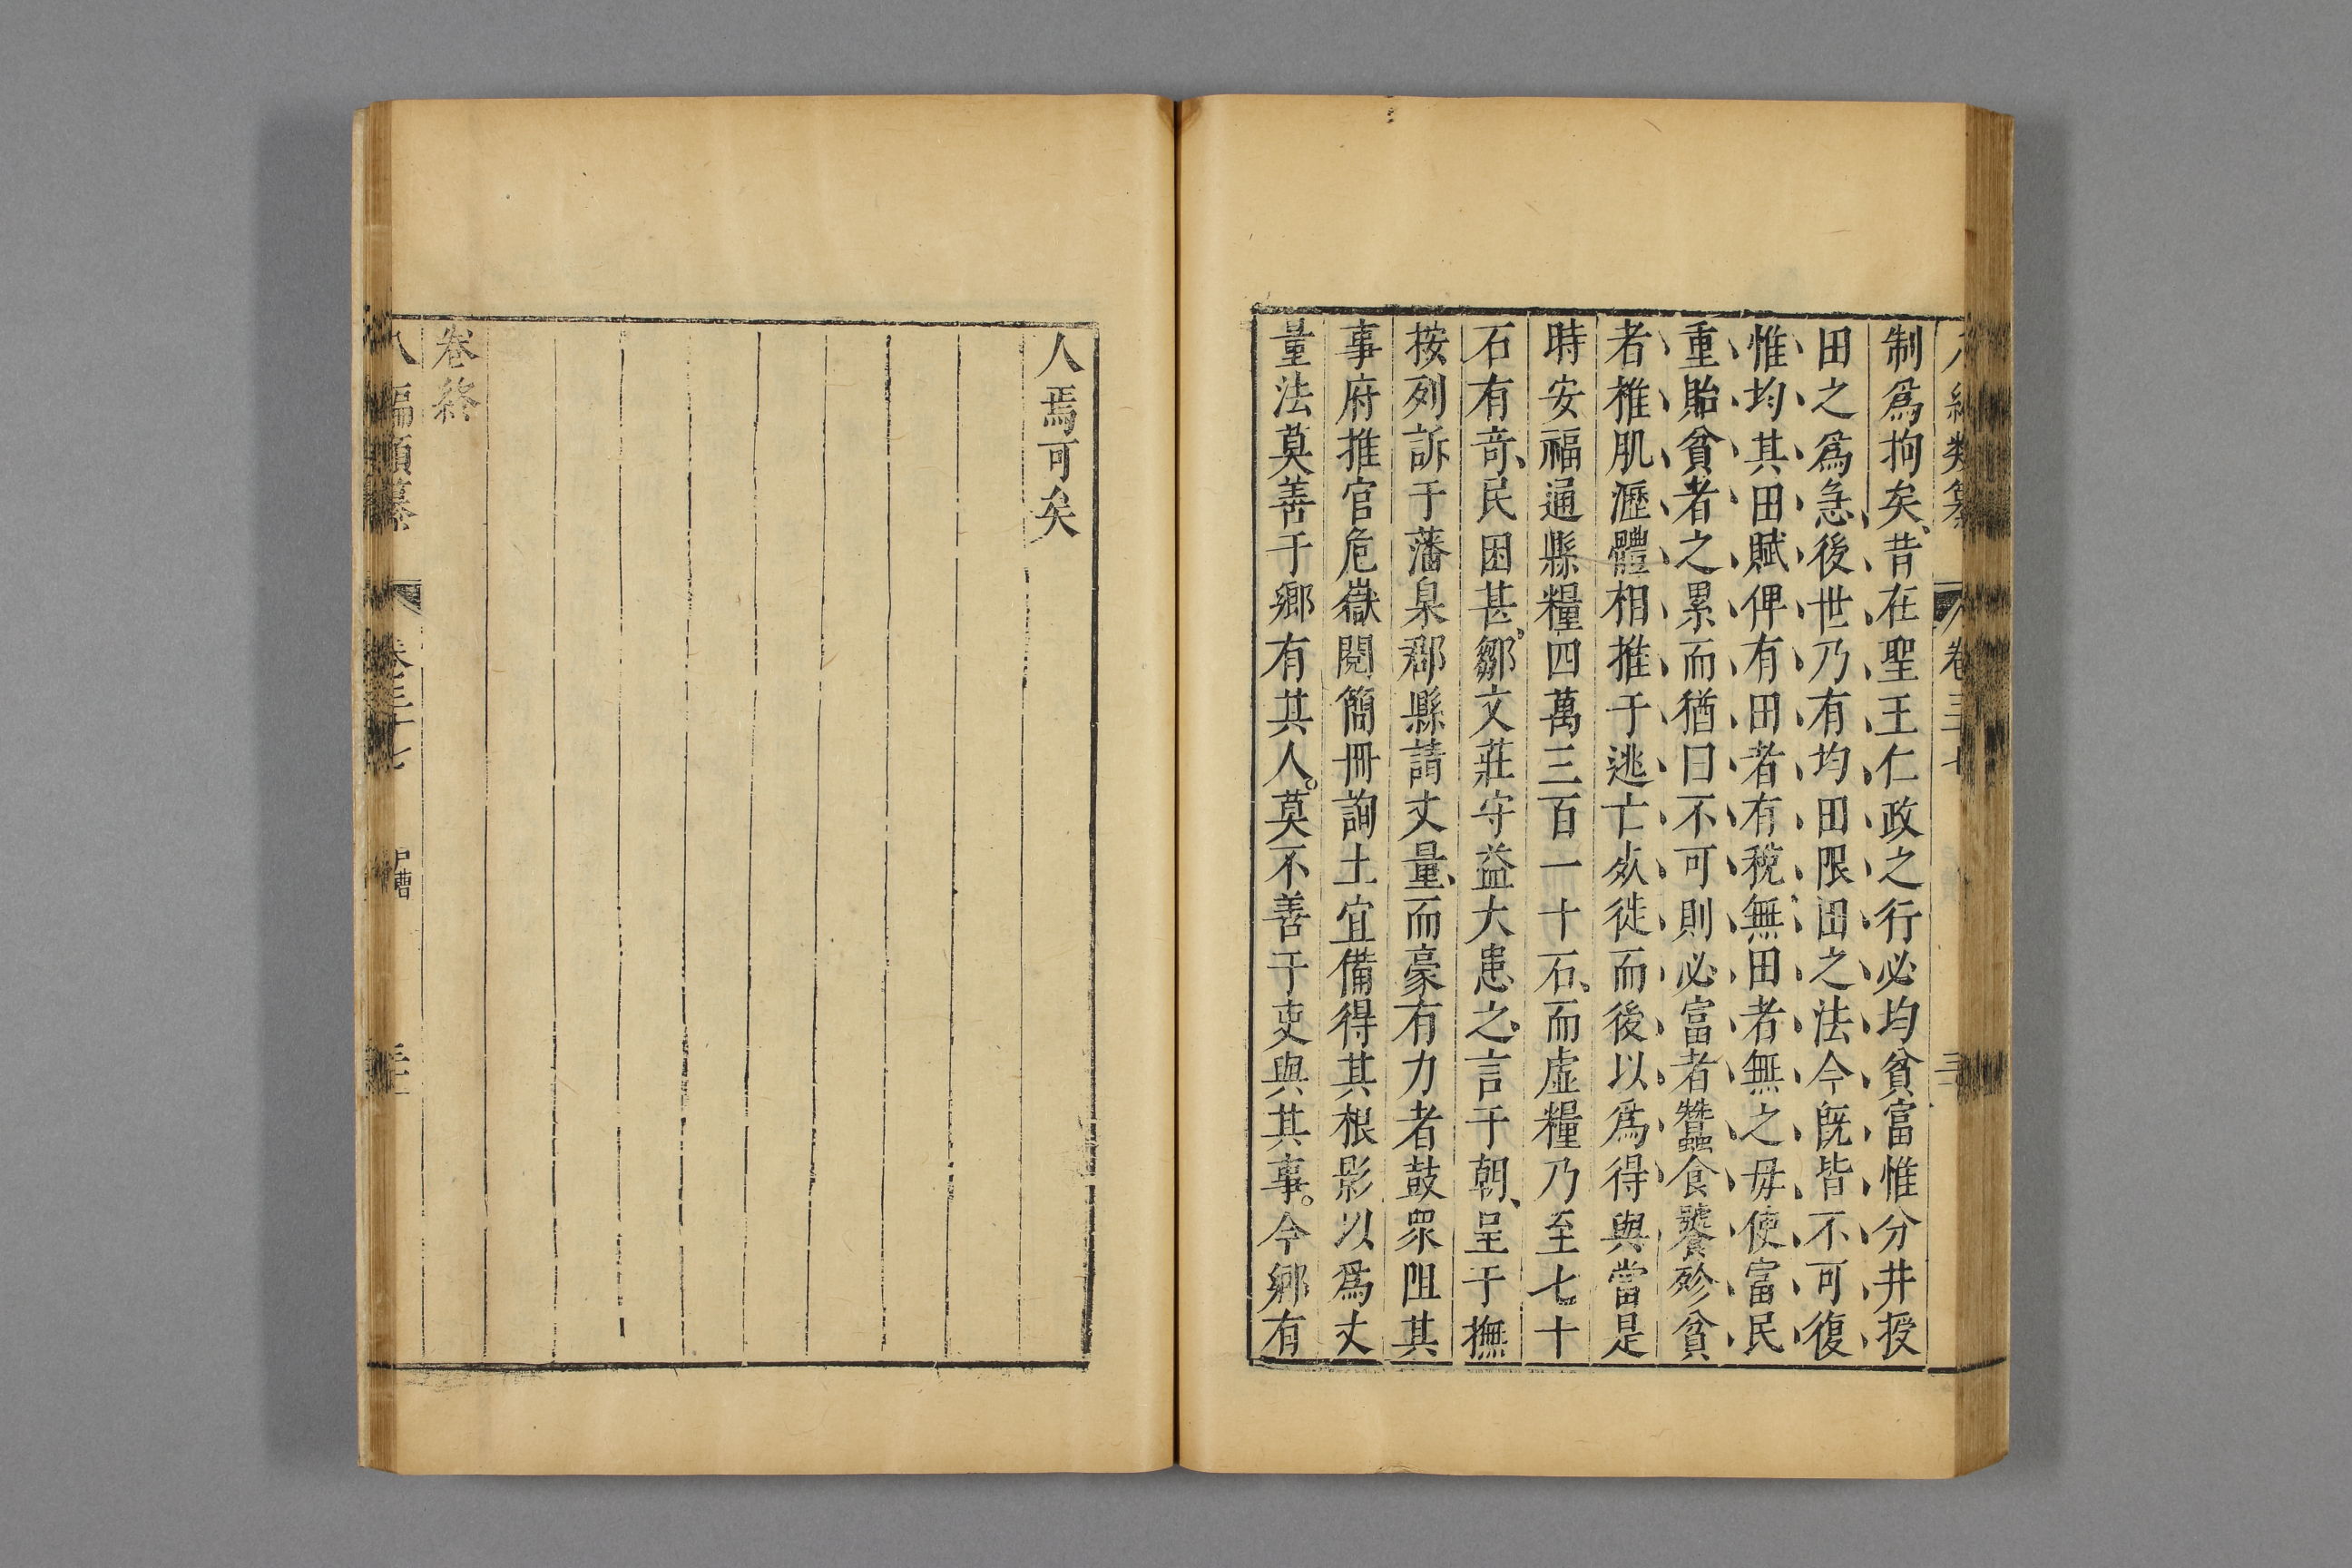 制爲拘矣、昔在聖王仁政之行必均貧富惟分井授
田之爲急後世乃有均田限田之法今旣皆不可復
惟均其田賦俾有田者有稅無田者無之毋使富民
重貽貧者之累而猶曰不可則必富者蠶食饕殄貧
者椎肌瀝體相推于逃亡死徙而後以爲得與當是
時安福通縣糧四萬三百一十石而虛糧乃至七十
石有奇、民困甚。鄒文莊守益大患之。言于朝、呈于撫
按列訴于藩臬郡縣請丈量、而豪有力者鼓眾阻其
事府推官危嶽閱簡冊詢土宜備得其根影以爲丈
量法莫善于鄉有其人。莫不善于吏與其事。今鄉有
人焉可矣
卷終
八編類纂 卷三十七